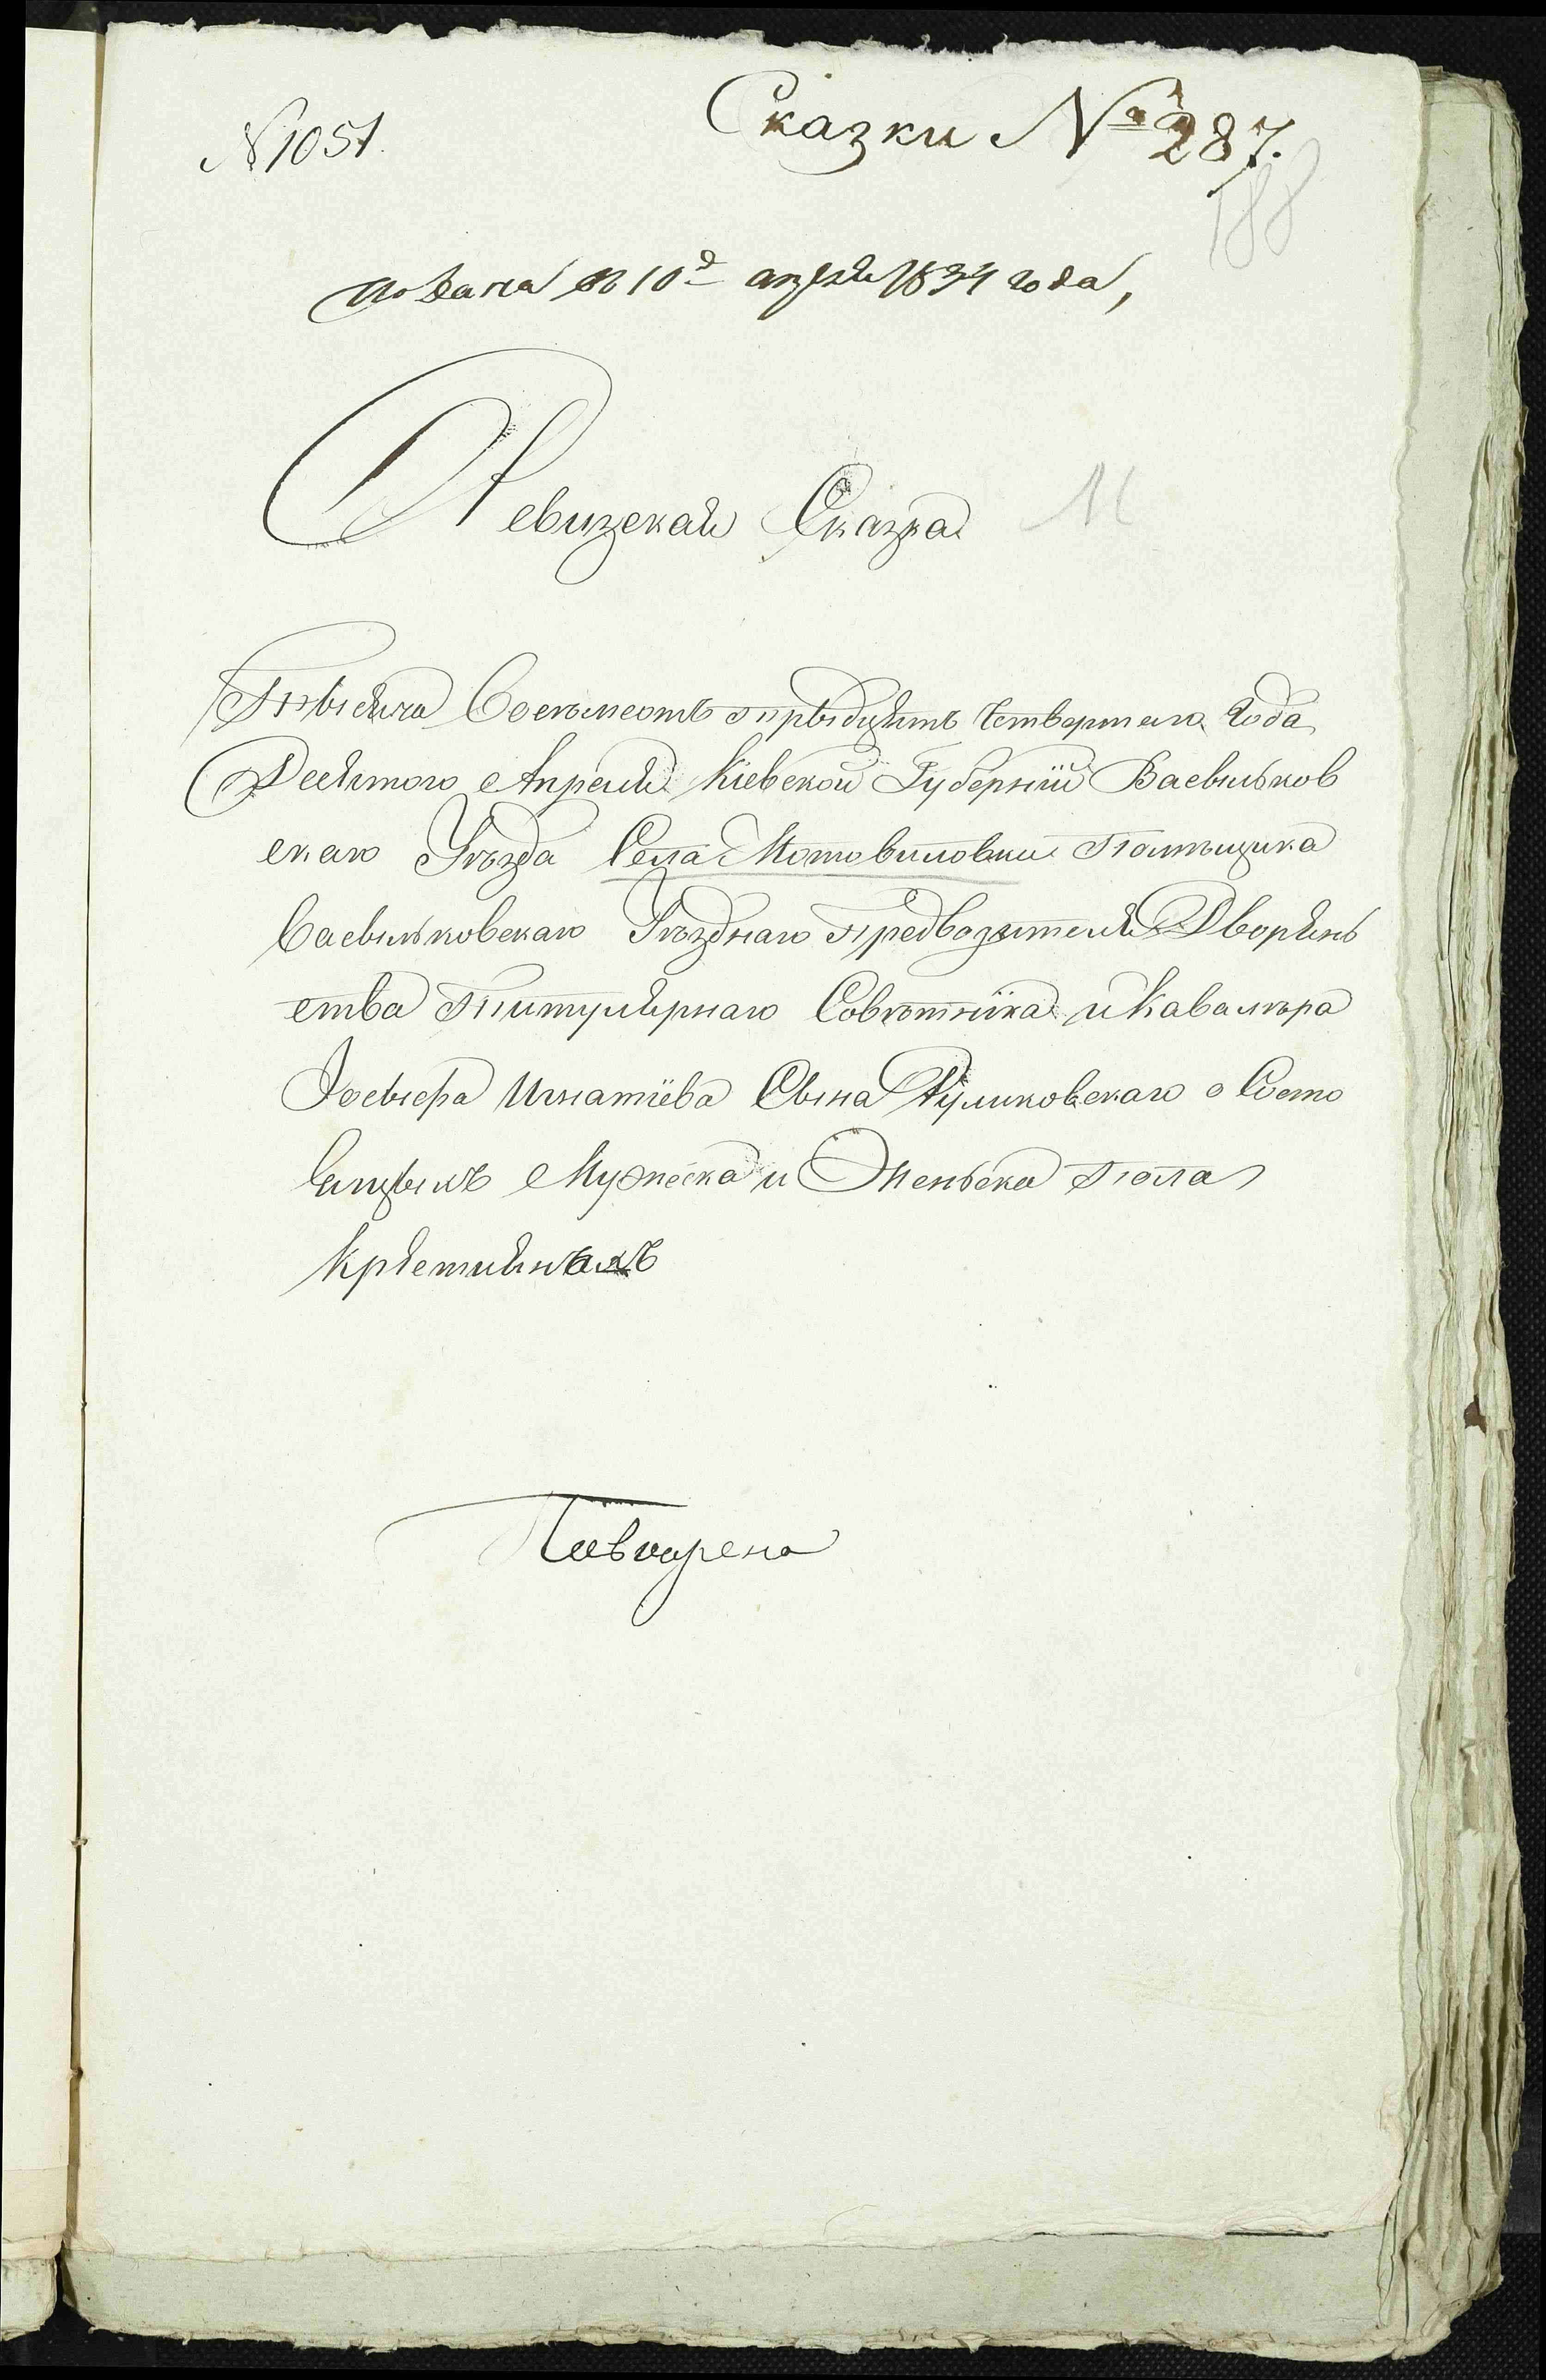 N 1051.
Сказки № 287.
188
подана въ 10й апреля 1834 года,
Ревизская Сказка
11
Тысяча Восемьсотъ тридцять Четвертаго года
Десятого Апреля Кіевской Губерніи Васильков
скаго Уѣзда Села Мотовиловки Помѣщика
Васильковскаго Уѣзднаго Предводителя Дворянь
ства Титулярнаго Совѣтника и Кавалѣра
Іосыфа Игнатіева Сына Руликовскаго о Состо
ящыхъ Мужеска и Женьска пола
Крястиянахъ